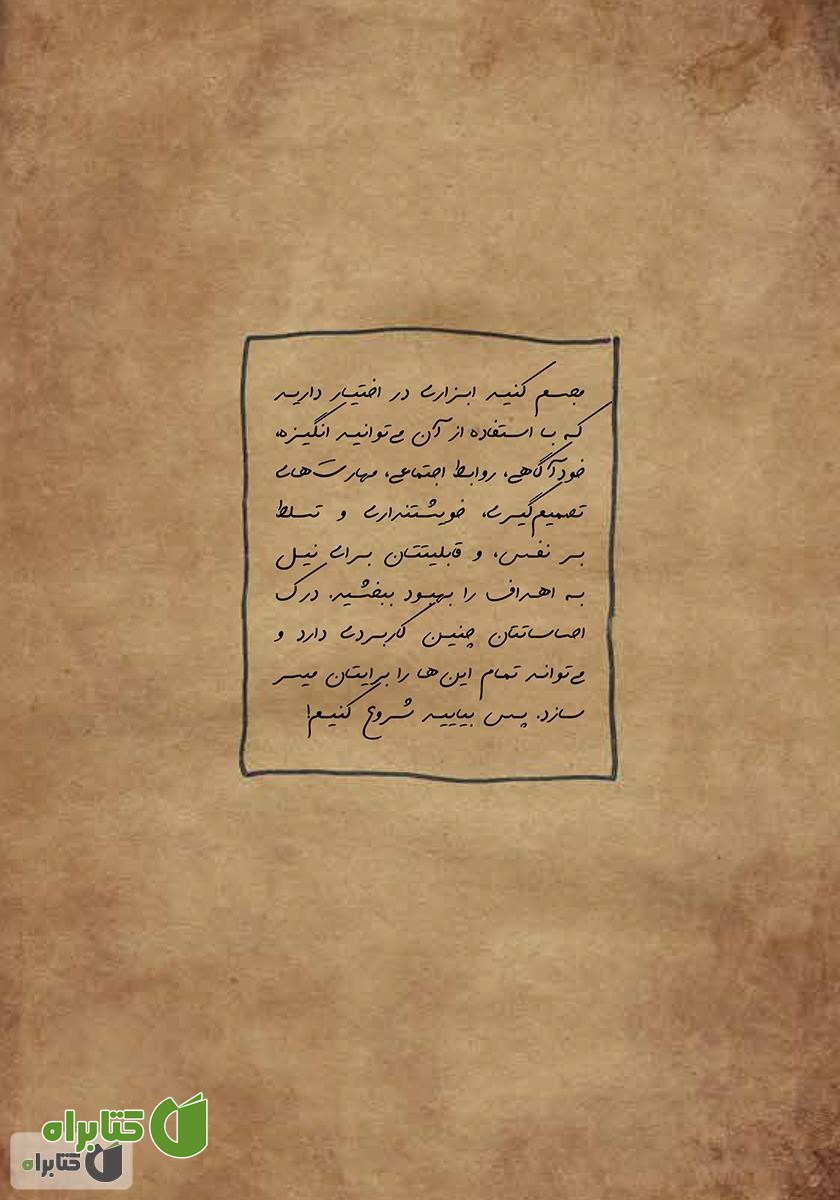 مجسم کنید ابزاری در اختیار دارید
که با استفاده از آن می‌توانید انگیزه،
خودآگاهی، روابط اجتماعی، مهارت‌های
تصمیم‌گیری، خویشتنداری و تسلط
بر نفس، و قابلیتتان برای نیل
به اهداف را بهبود ببخشید. درک
احساساتتان چنین کاربردی دارد و
می‌تواند تمام این‌ها را برایتان میسر
سازد. پس بیایید شروع کنیم!
کتابراه
کتابراه